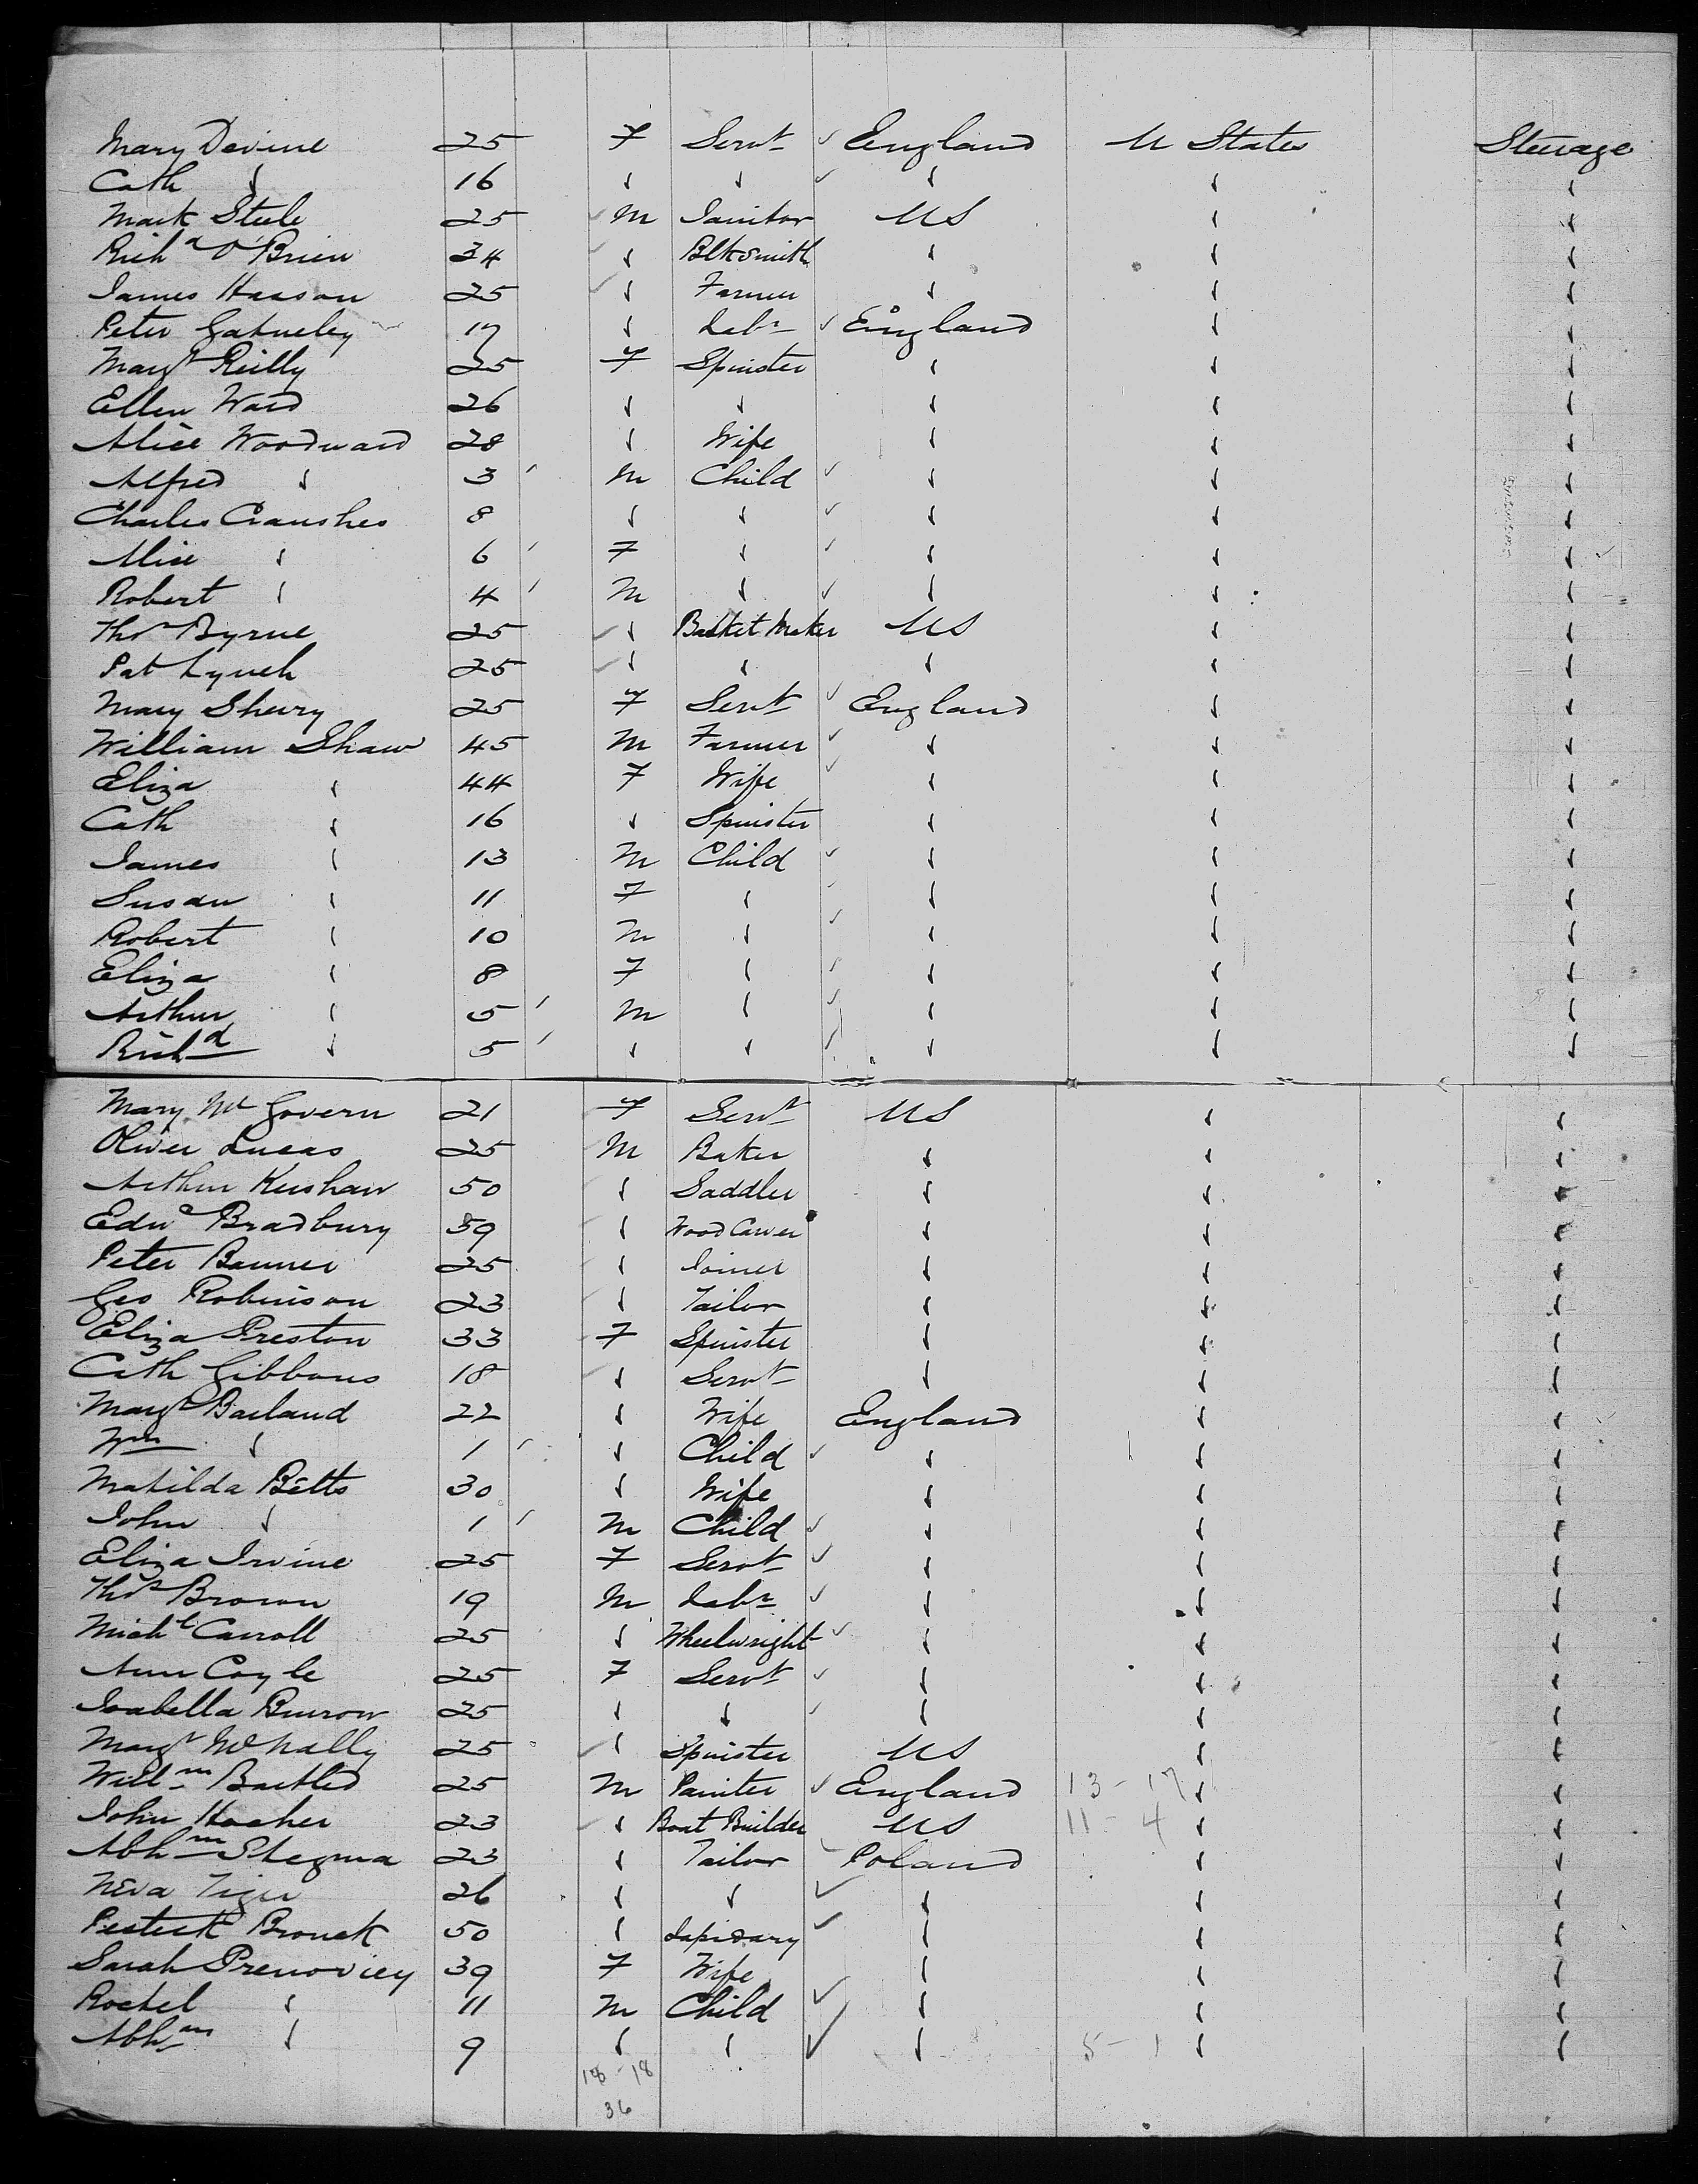 Mary Devine 25 F Servt England U States Steerage
Cath " 16 " " " " "
Mark Steele 25 M Janitor US " "
Richd O'Brien 34 " Blksmith " " "
James Hasson 25 " Farmer " " "
Peter 17 " Labr England " "
Margt Reilly 25 F Spinster " " "
Ellen Ward 26 " " " " "
Alice Woodward 28 " Wife " " "
Alfred " 3 M Child " " "
Charles 8 " " " " "
Alice " 6 F " " " "
Robert " 4 M " " " "
Thos Byrne 25 " Basket Maker US " "
Pat Lynch 25 " " " " "
Mary Sherry 25 F Servt England " "
William Shaw 45 M Farmer " " "
Eliza " 44 F Wife " " "
Cath " 16 " Spinster " " "
James " 13 M Child " " "
Susan " 11 F " " " "
Robert " 10 M " " " "
Eliza " 8 F " " " "
Arthur " 5 M " " " "
Richd " 5 " " " " "
Mary McGovern 21 F Servt US " "
Oliver Lucas 25 M Baker " " "
Arthur Kershaw 50 " Saddler " " "
Edwd Bradbury 59 " Wood Carver " " "
Peter Banner 25 " Joiner " " "
Geo Robinson 23 " Tailor " " "
Eliza Preston 33 F Spinster " " "
Cath Gibbons 18 " Servt " " "
Margt Barland 22 " Wife England " "
Wm " 1 " Child " " "
Matilda Betts 30 " Wife " " "
John " 1 M Child " " "
Eliza Irvine 25 F Servt " " "
Thos Brown 19 M Labr " " "
Michl Carroll 25 " Wheelwright " " "
Ann Coyle 25 F Servt " " "
Isabella Burrow 25 " " " " "
Margt McNally 25 " Spinster US " "
Willm 25 M Painter England 13-17 " "
John Hosher 23 " Boat Builder US 11-4 " "
Abhm Stegma 23 " Tailor Poland " "
Neva Tiger 26 " " " " "
50 " Lapidary " " "
Sarah 39 F Wife " " "
Rochel " 11 M Child " " "
Abhm " 9 " " " 5-1 " "
18-18
36